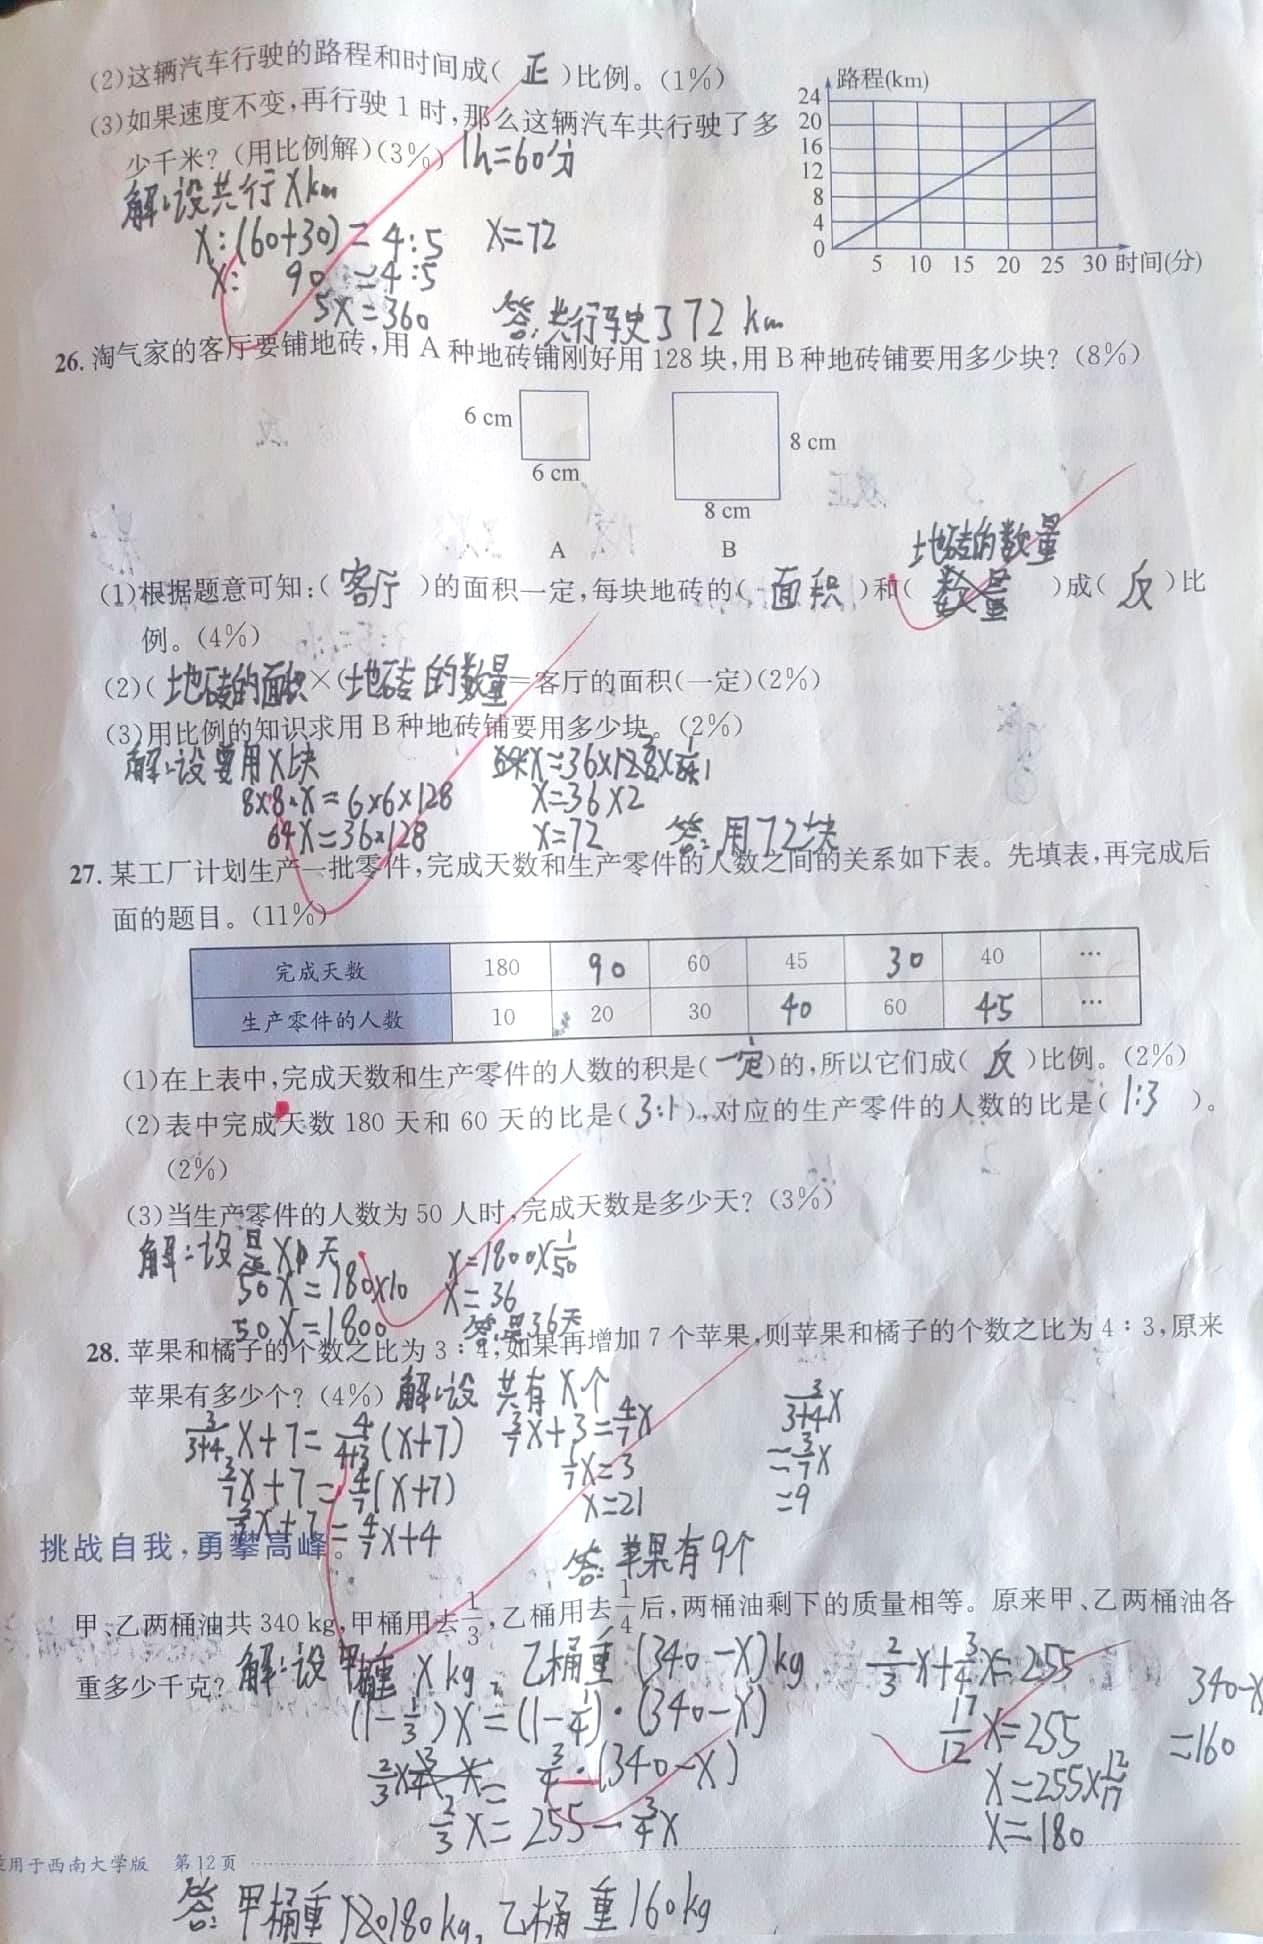 (2)这辆汽车行驶的路程和时间成( 正 )比例。(1%)
(3)如果速度不变,再行驶 1 时,那么这辆汽车共行驶了多
少千米?(用比例解)(3%) 1h=60分
解:设共行Xkm
X:(60+30)=4:5 X=72
X: 90 =4:5
5X=360 答:共行驶了72 km
路程(km)
24
20
16
12
8
4
0
5 10 15 20 25 30 时间(分)
26. 淘气家的客厅要铺地砖,用 A 种地砖铺刚好用 128 块,用 B 种地砖铺要用多少块?(8%)
6 cm
6 cm
8 cm
8 cm
A B
地砖的数量
(1)根据题意可知:( 客厅 )的面积一定,每块地砖的( 面积 )和( 数量 )成( 反 )比
例。(4%)
(2)( 地砖的面积 ×(地砖的数量=客厅的面积(一定)(2%)
(3)用比例的知识求用 B 种地砖铺要用多少块。(2%)
解:设要用X块
8×8·X=6×6×128 X=36×2
64X=36×128 X=72 答:用72块
27. 某工厂计划生产一批零件,完成天数和生产零件的人数之间的关系如下表。先填表,再完成后
面的题目。(11%)
完成天数 180 90 60 45 30 40 …
生产零件的人数 10 20 30 40 60 45 …
(1)在上表中,完成天数和生产零件的人数的积是(一定)的,所以它们成( 反 )比例。(2%)
(2)表中完成天数 180 天和 60 天的比是( 3:1 ),对应的生产零件的人数的比是( 1:3 )。
(2%)
(3)当生产零件的人数为 50 人时,完成天数是多少天?(3%)
解:设是X天 X=1800×1/50
50X=180×10 X=36
50X=1800 答:是36天
28. 苹果和橘子的个数之比为 3∶4,如果再增加 7 个苹果,则苹果和橘子的个数之比为 4∶3,原来
苹果有多少个?(4%) 解:设 共有 X个
3/3+4 X+7=4/4+3 (X+7) 3/7X+3=4/7X 3/3+4 X
3/7X+7=4/7(X+7) 1/7X=3 =3/7X
3/7X+7=4/7X+4 X=21 =9
答:苹果有9个
挑战自我,勇攀高峰。
甲、乙两桶油共 340 kg,甲桶用去1/3,乙桶用去1/4后,两桶油剩下的质量相等。原来甲、乙两桶油各
重多少千克? 解:设甲桶重 X kg, 乙桶重(340-X)kg 2/3X+3/4X=255 340-X
(1-1/3)X=(1-1/4)·(340-X) 17/12X=255 =160
= 3/4·(340-X) X=255×12/17
2/3X=255-3/4X X=180
用于西南大学版 第12页
答:甲桶重180kg,乙桶重160kg